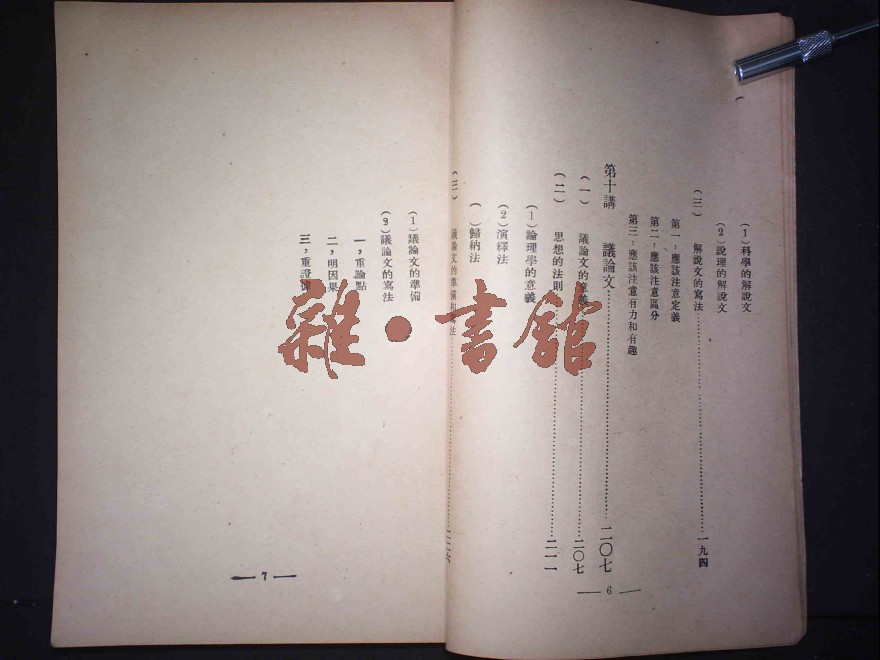 (1)科學的解說文
(2)說理的解說文
(三) 解說文的寫法……一九四
第一，應該注意定義
第二，應該注意區分
第三，應該注意有力和有趣
第十講 議論文……二〇七
(一) 議論文的意義……二〇七
(二) 思想的法則……二一一
(1)論理學的意義
(2)演釋法
( )歸納法
— 6 —
(三) 議論文的準備和寫法
(1)議論文的準備
(2)議論文的寫法
一，重論點
二，明因果
三，重證
— 7 —
雜•書館